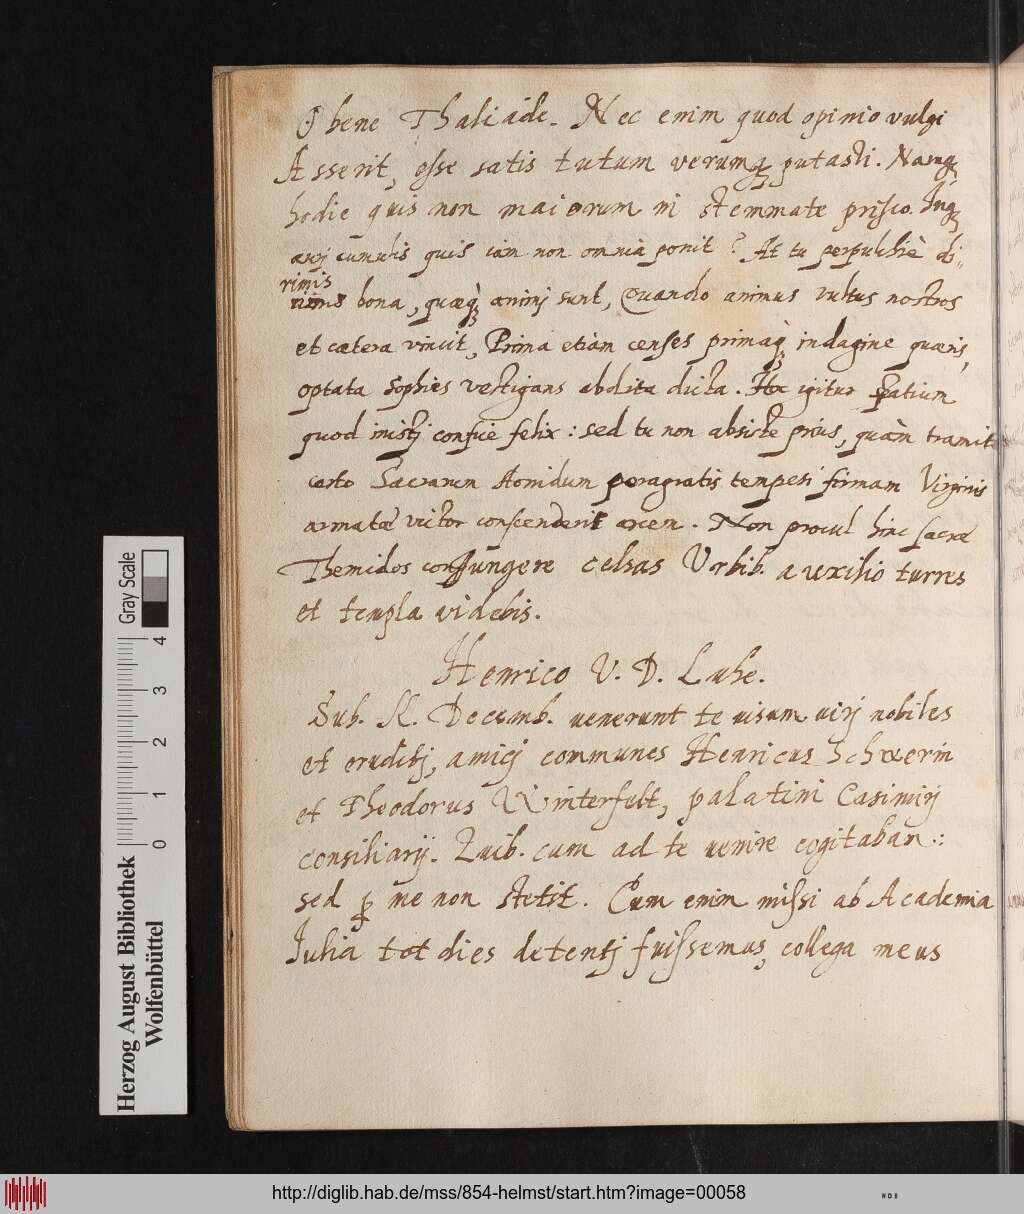 O bene Thaliade. Nec enim quod opinio vulgi
Asserit, esse satis tutum verumq3 putasti. Namq3
hodie quis non maiorum in stemmate prisco. Inq3
auri cumulis quis iam non omnia ponit? At tu perpulchrè di-
rimis
bona, quæq3 animi sunt, Quando animus vultus nostros
et cætera vincit, Prima etiam censes primaq3 indagine quæris,
optata Sophies vestigans abdita ducta. igitur spatium
quod inistj confice felix: sed tu non absiste prius, quàm tramit
certo Sacrarum Aonidum peragratis tempesi firmam Virginis
armatæ victor conscenderis arcem. Non procul hinc sacræ
Themidos conjungere celsas Vrbib. auxilio turres
et templa videbis.
Henrico V. D. Luhe.
Sub. K. Decemb. venerunt te visum virj nobiles
et eruditj, amicj communes Henricus Schwerin
et Theodorus Winterfelt, palatini Casimirj
consiliarij. Quib. cum ad te venire cogitaban:
sed p me non stetit. Cum enim missi ab Academia
Iulia tot dies detentj fuissemus, collega meus
Gray Scale
0 1 2 3 4
Herzog August Bibliothek
Wolfenbüttel
http://diglib.hab.de/mss/854-helmst/start.htm?image=00058
WDB